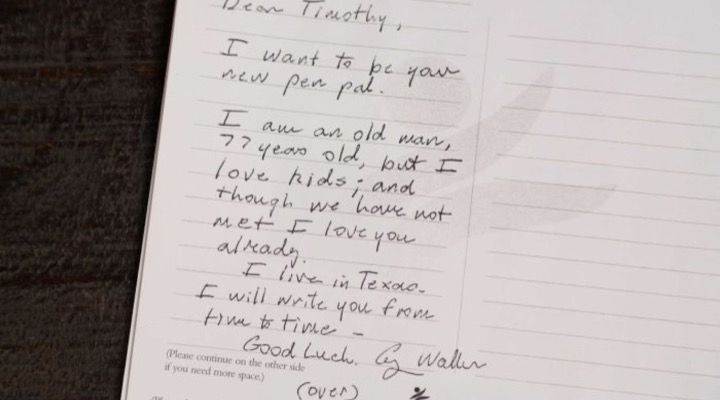 Dear Timothy,
I want to be your
new pen pal.
I am an old man,
77 years old, but I
love kids; and
though we have not
met I love you
already.
I live in Texas.
I will write you from
time to time –
Good Luck. G. Walker
(Please continue on the other side
if you need more space.)
(over)